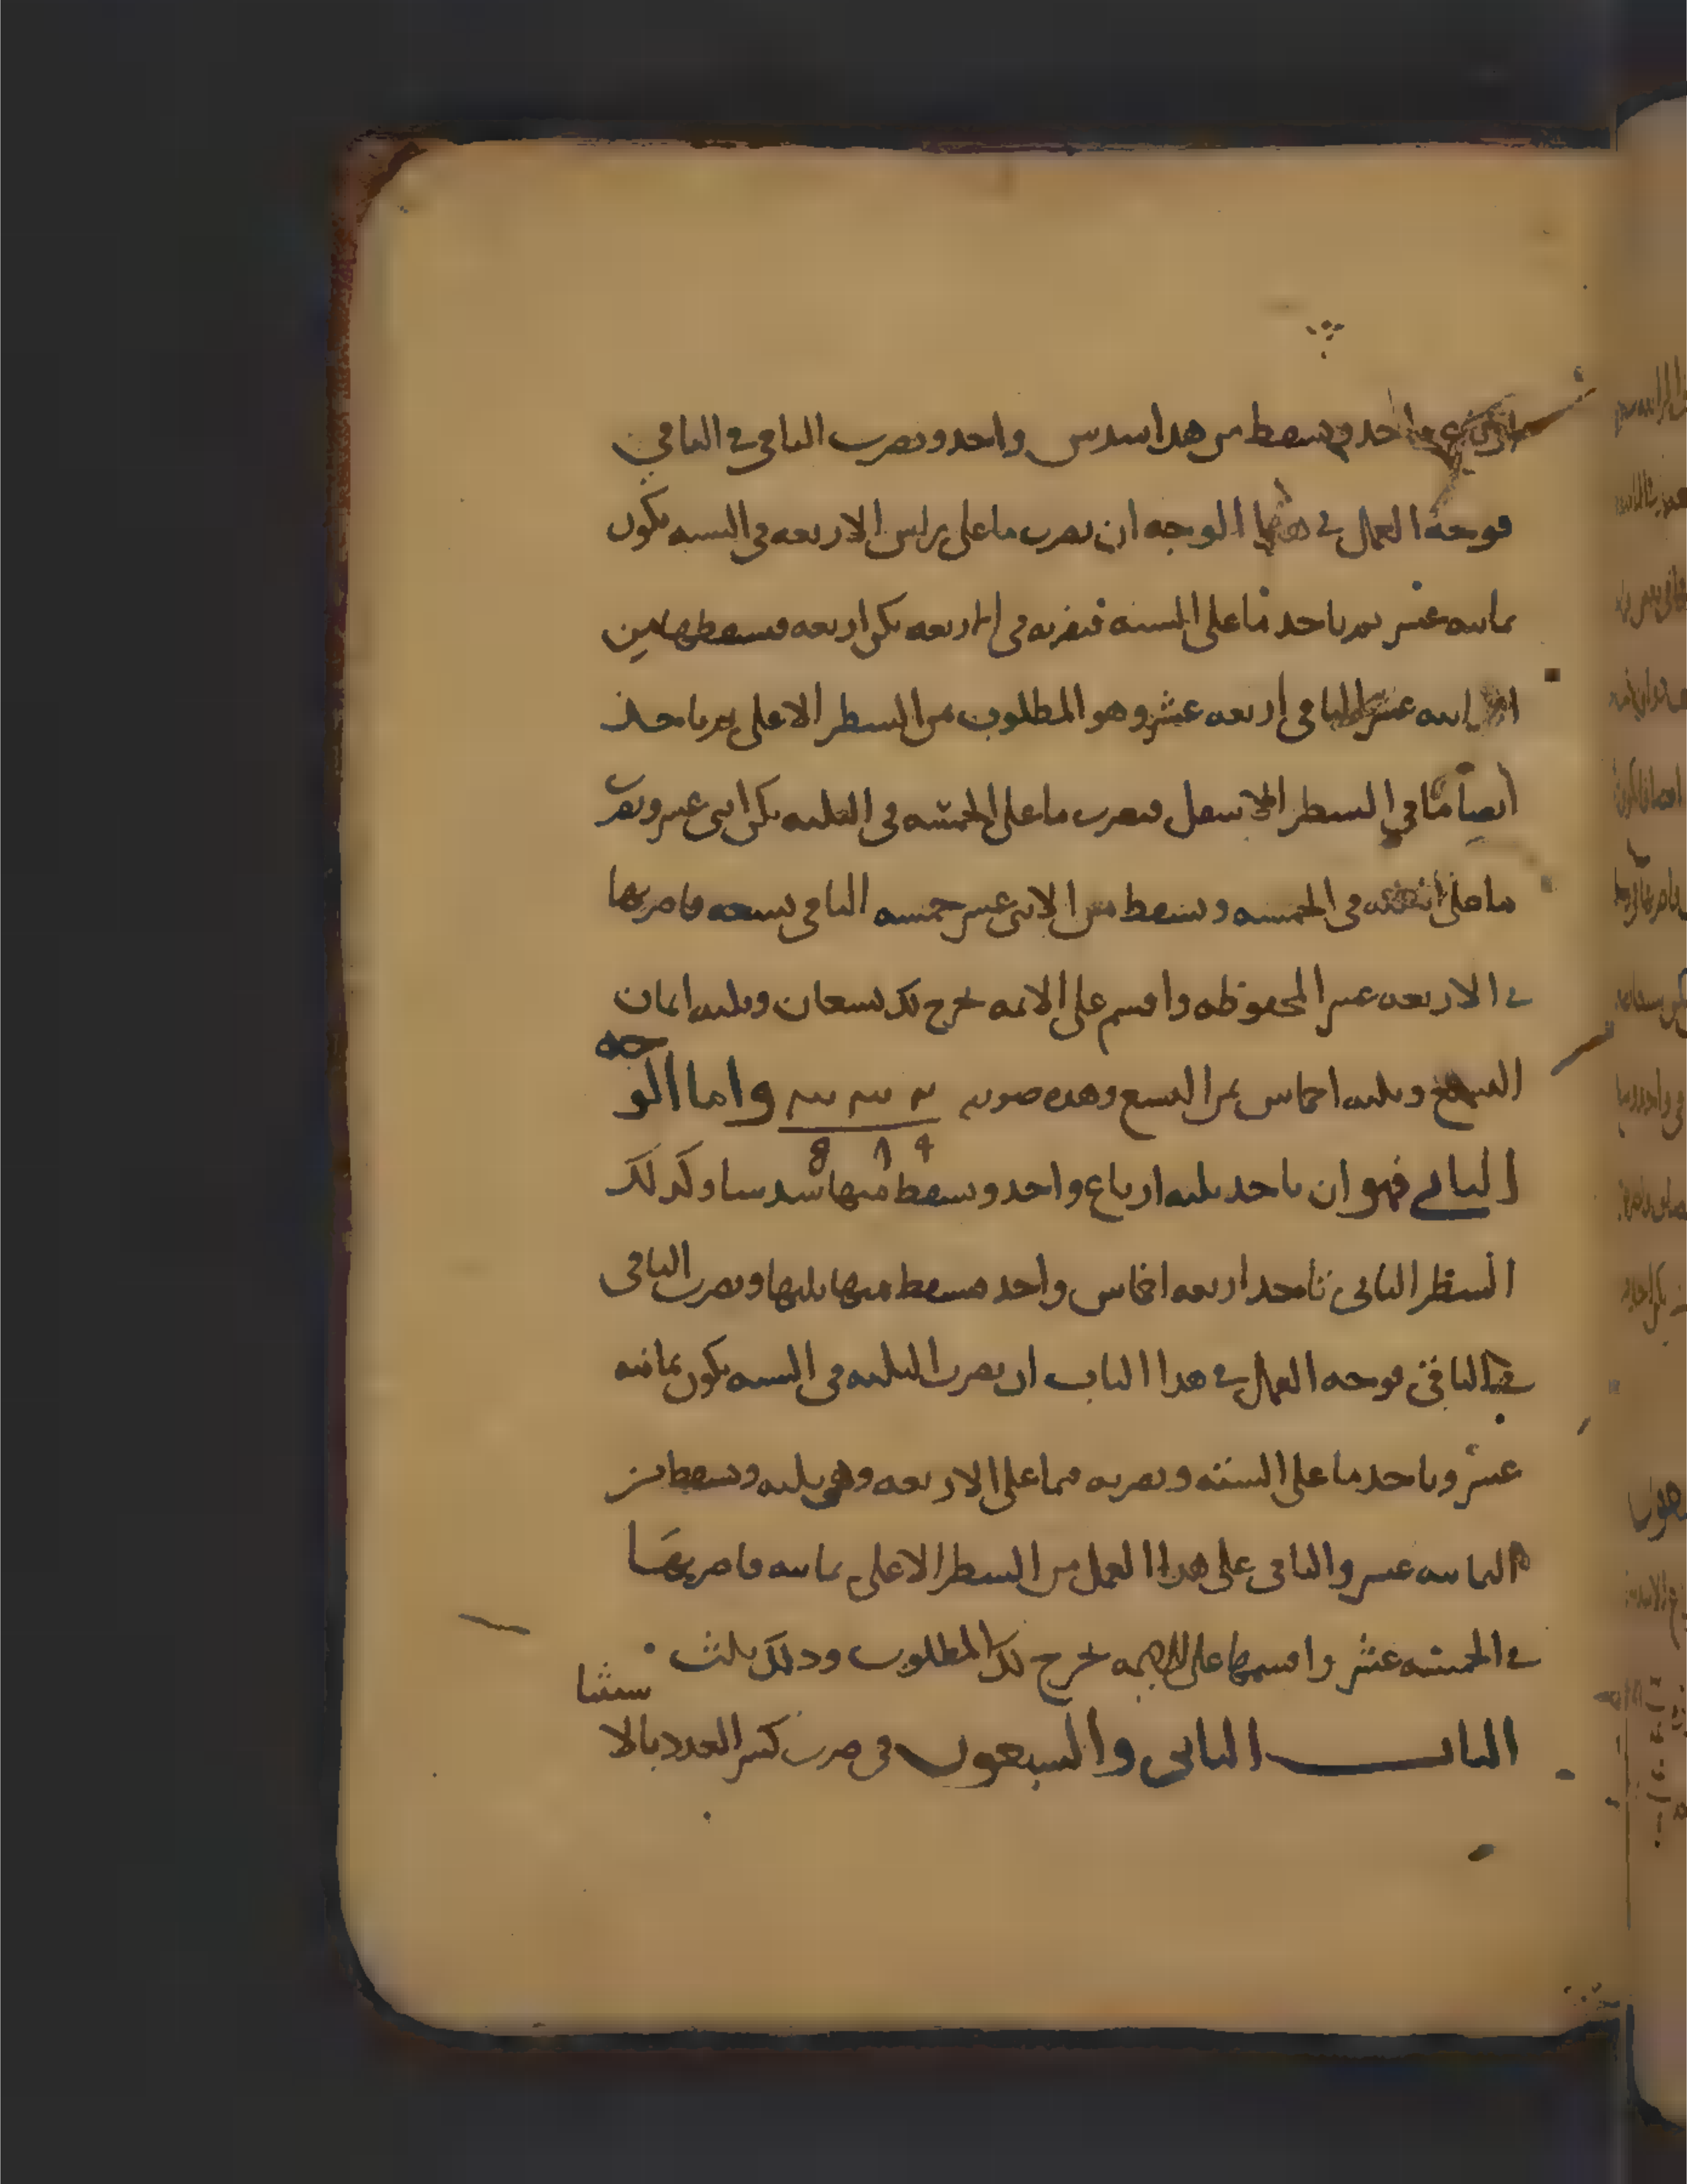 ارباع واحد ويسقط من هذا سدس واحد ونضرب الباقي في الباقي
فوجه العمل في هذا الوجه ان نضرب ما على راس الاربعة في الستة يكون
ثمانية عشر ثم ناخذ ما على الستة فنضربه في الاربعة يكن اربعة فنسقطها من
الثمانية عشر الباقي اربعة عشر وهو المطلوب من السطر الاعلى ثم ناخذ
ايضا ما في السطر الاسفل فنضرب ما على الخمسة في الثلثة يكن اثنى عشر ونضرب
ما على الثلثة في الخمسة ونسقط من الاثنى عشر خمسة الباقي سبعة فاضربها
في الاربعة عشر المحفوظة واقسم على الائمة يخرج لك تسعان وثلثه اثمان
التسع وثلثه اخماس ثمن التسع وهذه صورته واما الوجه
الثاني فهو ان ناخذ ثلثه ارباع واحد ونسقط منها سدسا وكذلك
السطر الثاني ناخذ اربعه اخماس واحد فنسقط منها ثلثها ونضرب الباقي
في الباقي فوجه العمل في هذا الباب ان نضرب الثلثه في الستة يكون ثمانية
عشر وناخذ ما على الستة ونضربه فيما على الاربعة وهي ثلثه ونسقط من
الثمانية عشر والباقي على هذا العمل من السطر الاعلى ثمانيه فاضربها
في الخمسة عشر واقسمها على الايمه يخرج لك المطلوب وذلك ثلث
الباب الثاني والسبعون في ضرب كسر العدد بالاستثنا